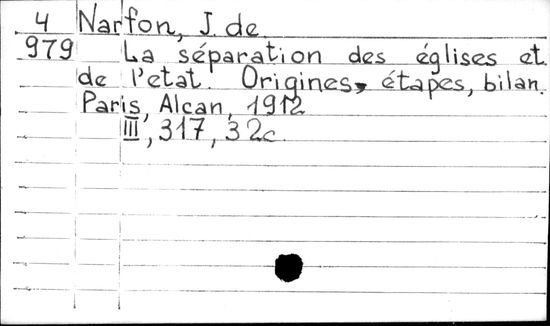 4 Narfon, J. de
979 La séparation des églises et
de l'etat. Origines, étapes, bilan.
Paris, Alcan, 1912
III, 317, 32c.